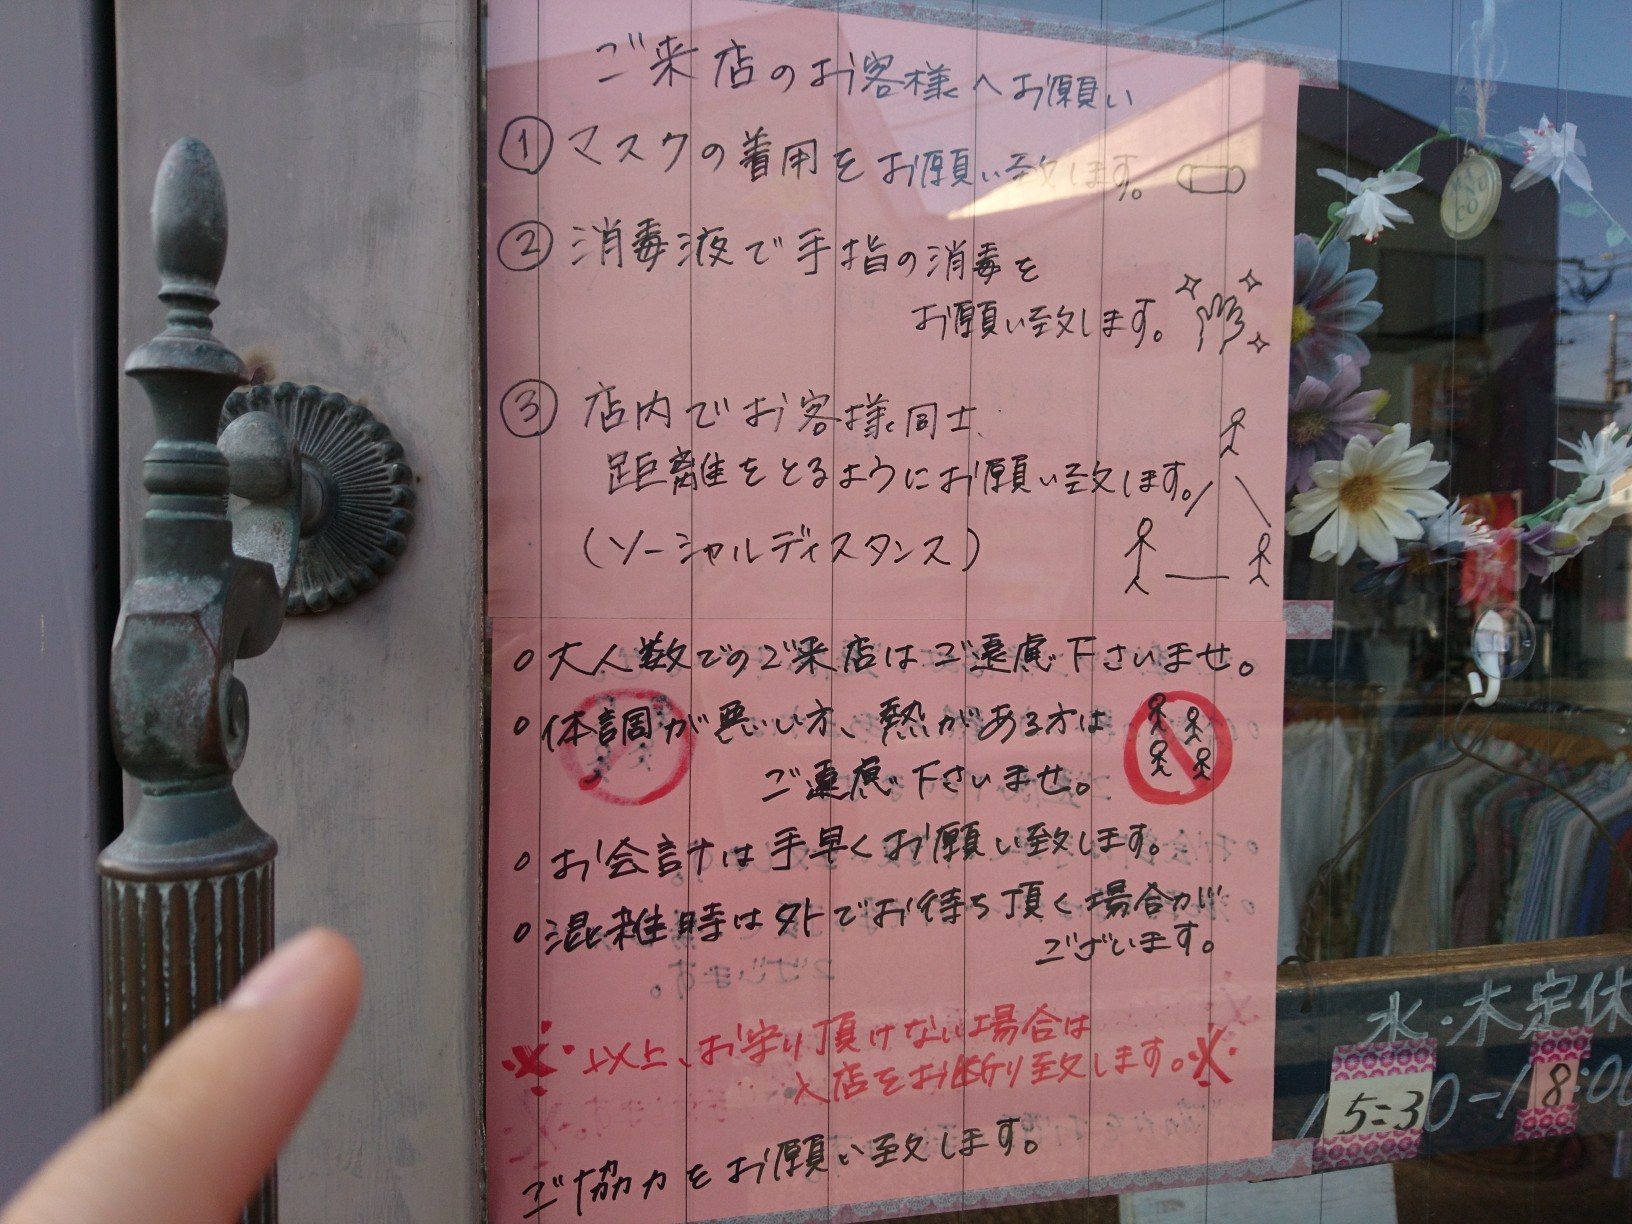 ご来店のお客様へお願い
① マスクの着用をお願い致します。
② 消毒液で手指の消毒を
お願い致します。
③ 店内でお客様同士
距離をとるようにお願い致します。
(ソーシャルディスタンス)
○ 大人数でのご来店はご遠慮下さいませ。
○ 体調が悪い方、熱がある方は
ご遠慮下さいませ。
○ お会計は手早くお願い致します。
○ 混雑時は外でお待ち頂く場合が
ございます。
※ 以上、お守り頂けない場合は
入店をお断り致します。※
ご協力をお願い致します。
水・木定休
8:00